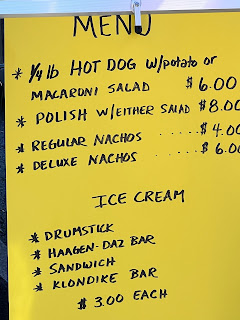 MENU
* 1/4 lb HOT DOG w/potato or
MACARONI SALAD $6.00
* POLISH W/EITHER SALAD $8.00
* REGULAR NACHOS ..... $4.00
* DELUXE NACHOS ... $6.00
ICE CREAM
* DRUMSTICK
* HAAGEN-DAZ BAR
* SANDWICH
* KLONDIKE BAR
$3.00 EACH